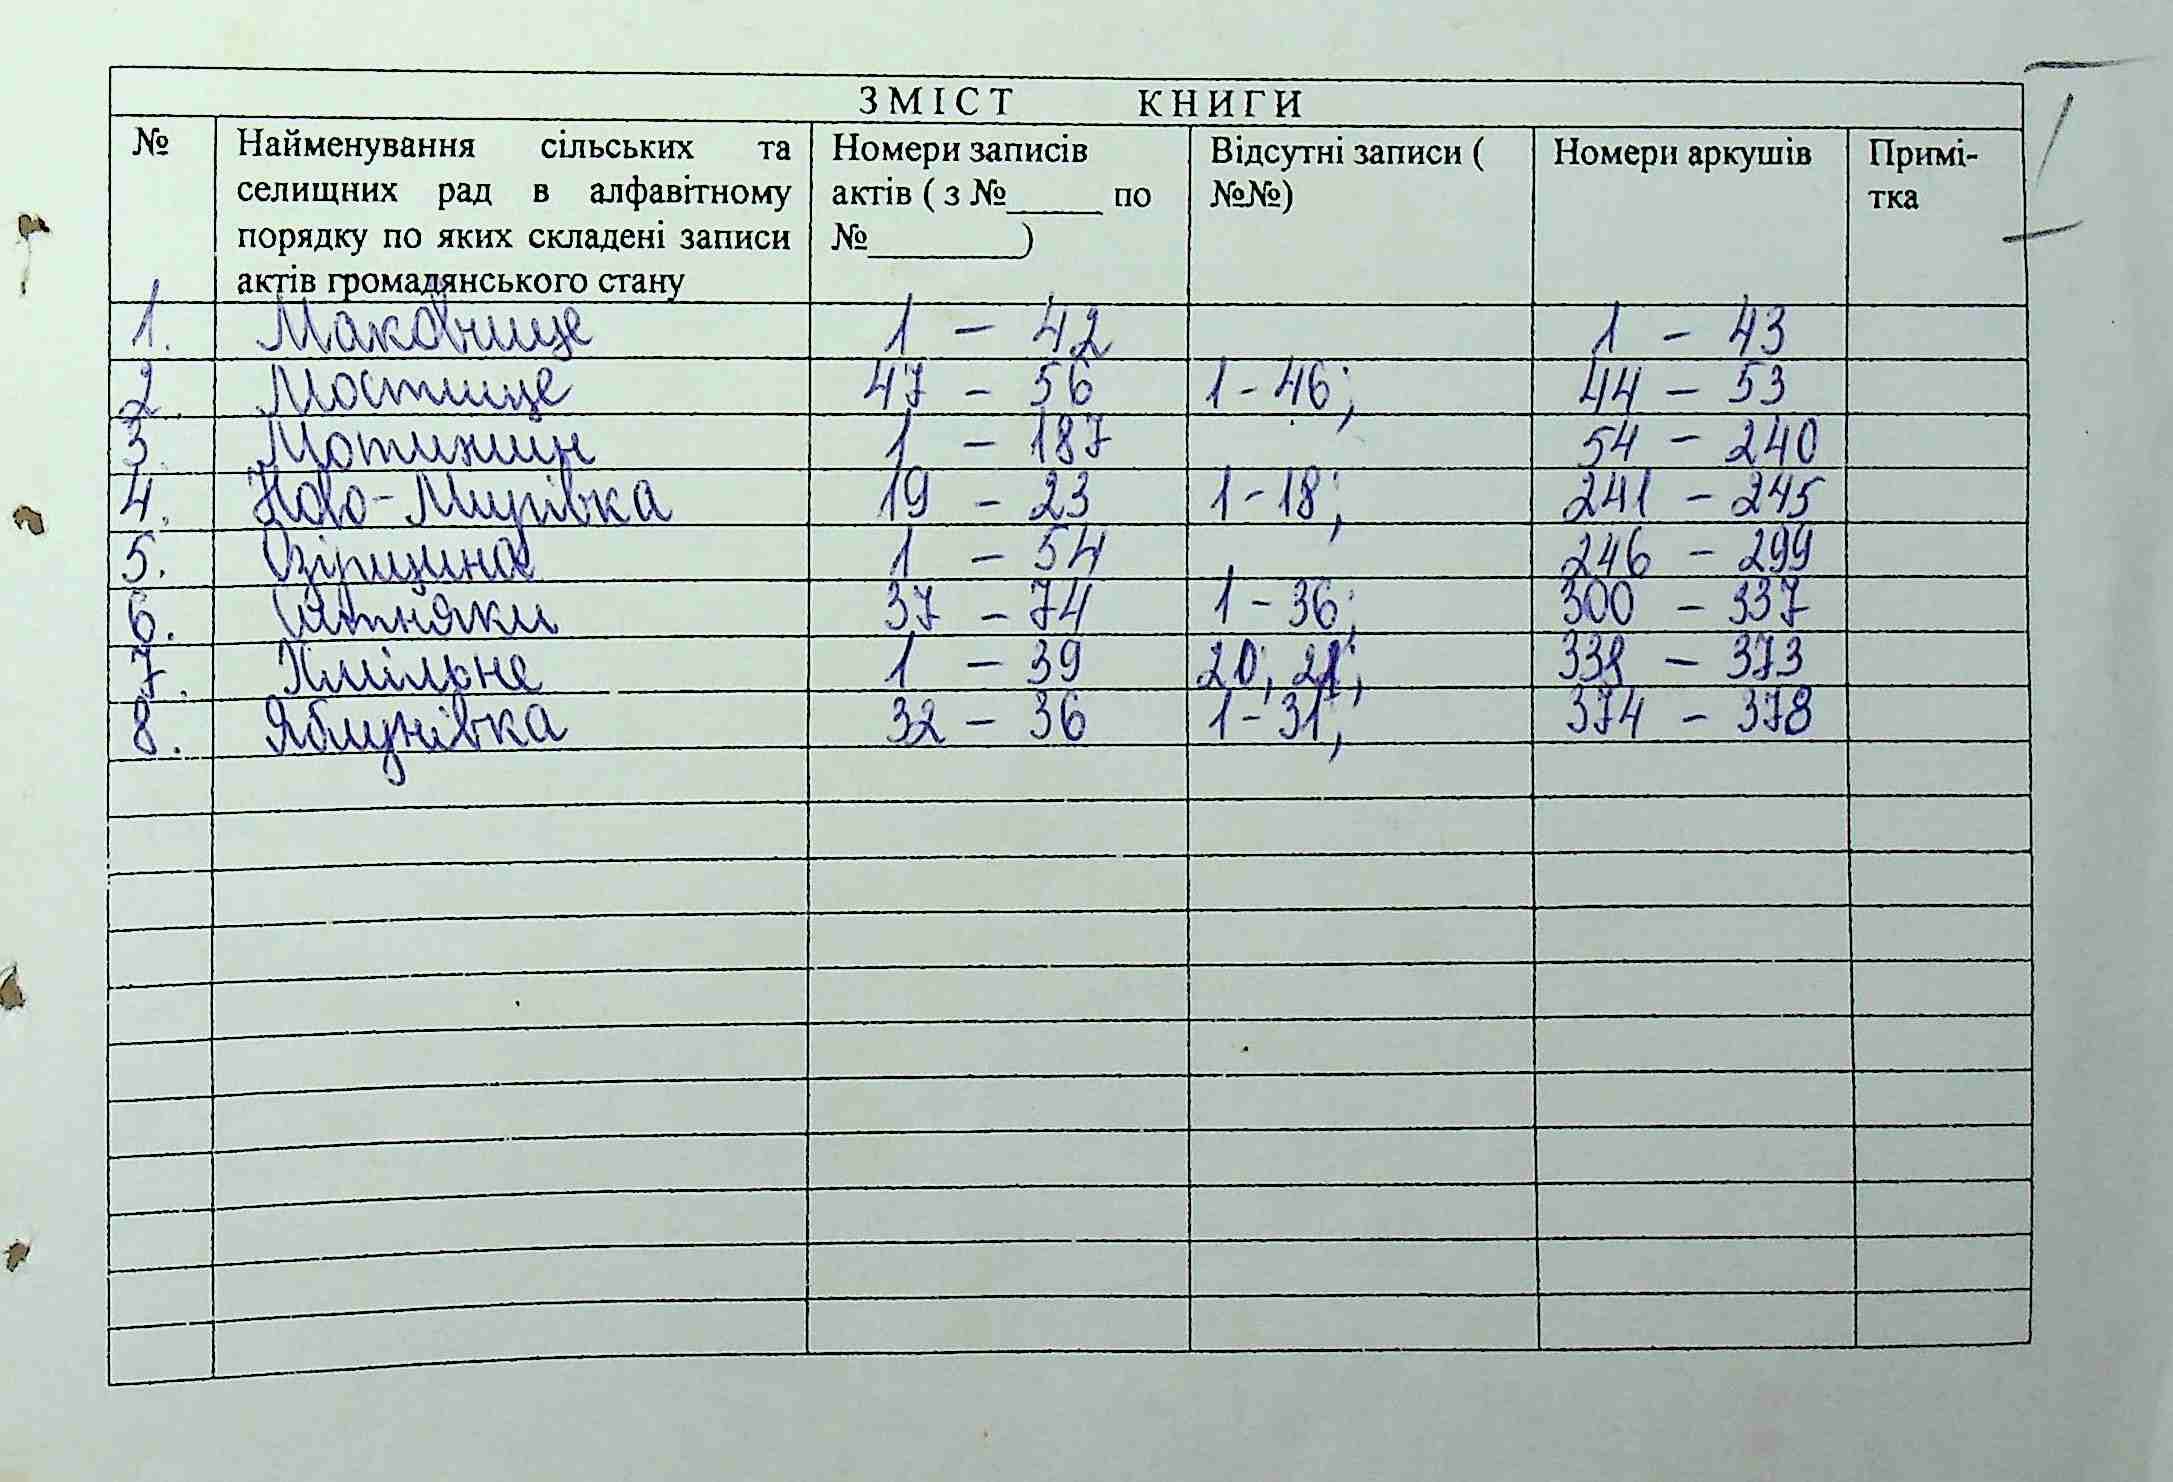 ЗМІСТ КНИГИ
№ Найменування сільських та селищних рад в алфавітному порядку по яких складені записи актів громадянського стану Номери записів актів ( з №_____ по №________) Відсутні записи ( №№) Номери аркушів Примі-тка
1. Маковище 1 - 42 1 - 43
2. Мостище 47 - 56 1 - 46; 44 - 53
3. Мотижин 1 - 187 54 - 240
4. Ново-Мирівка 19 - 23 1 - 18; 241 - 245
5. Озірщина 1 - 54 246 - 299
6. Ситняки 37 - 74 1 - 36; 300 - 337
7. Хмільне 1 - 39 20; 21; 338 - 373
8. Яблунівка 32 - 36 1 - 31; 374 - 378